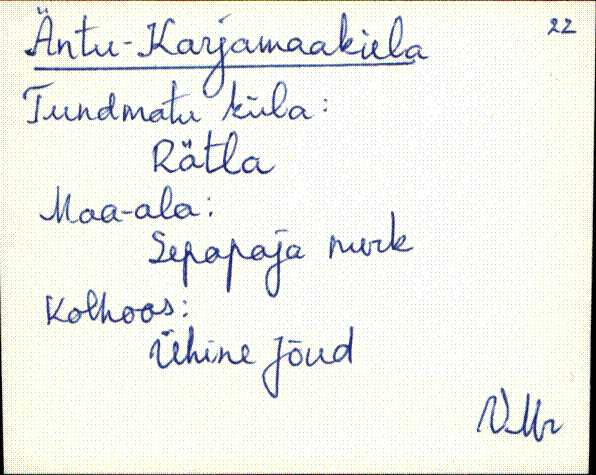 22
Äntu-Karjamaakiela
Tundmatu küla:
Rätla
Maa-ala:
Sepapaja nurk
Kolhoos:
Ühine jõud
VMr